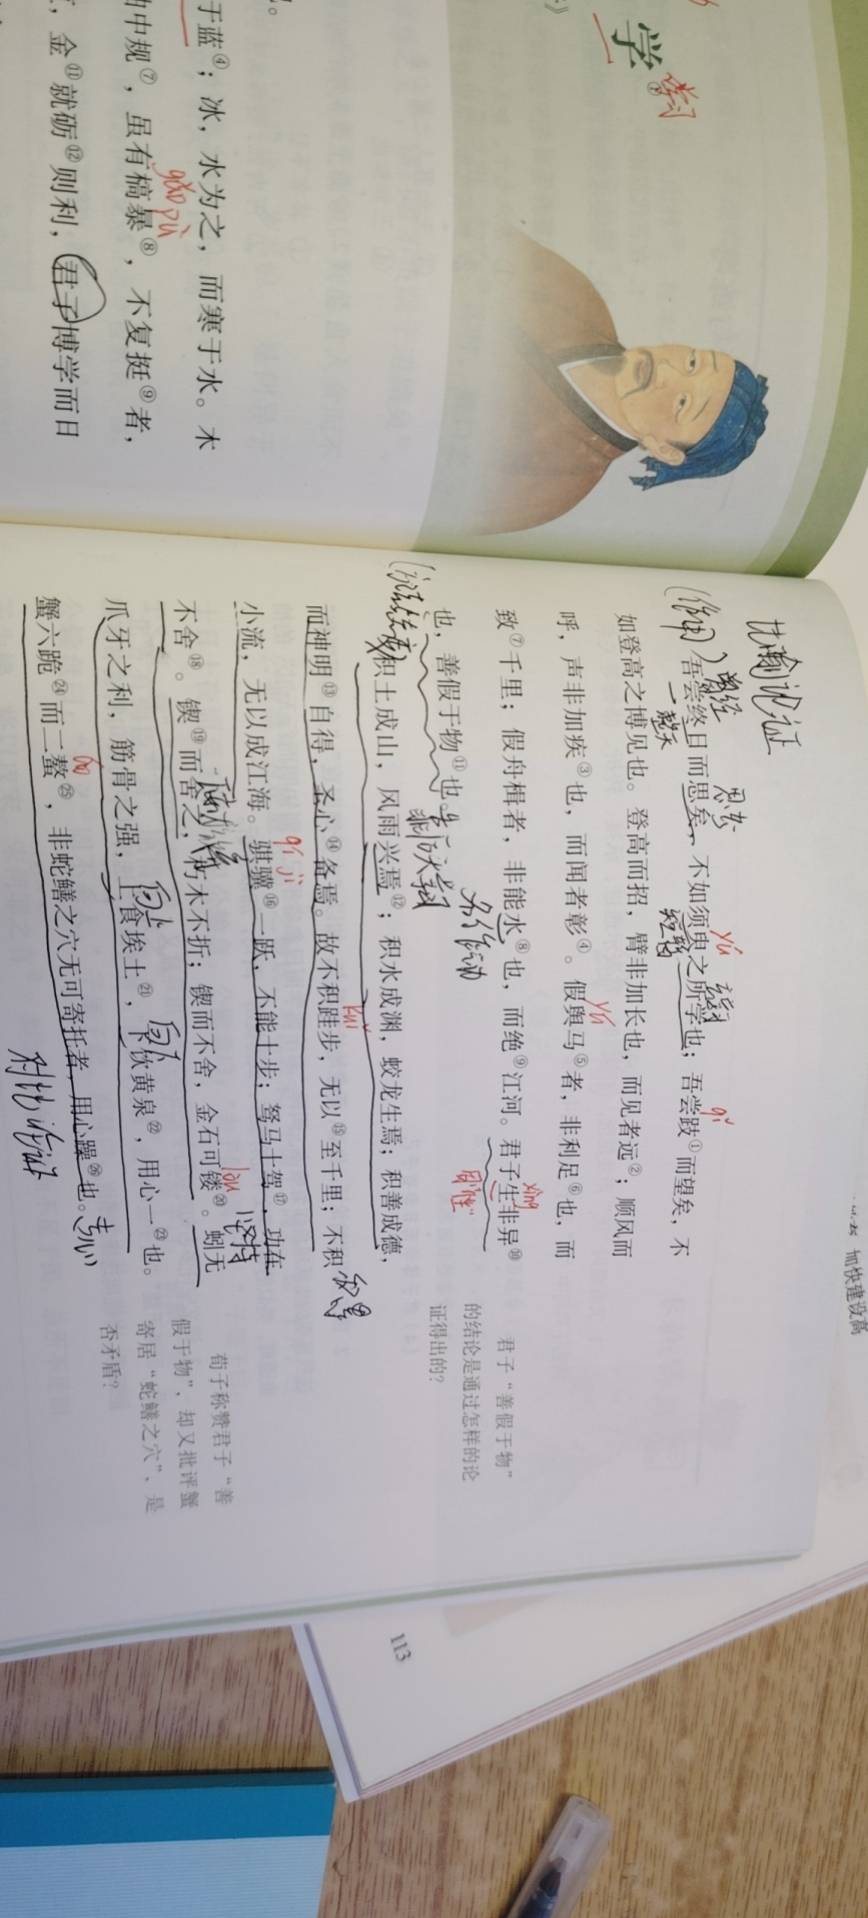 学
学习
于蓝④；冰，水为之，而寒于水。木
中规⑦，虽有槁暴⑧，不复挺⑨者，
gǎo pù
金⑪就砺⑫则利，君子博学而日
比喻论证
（作用）
曾经
思考
一整天
吾尝终日而思矣，不如须臾之所学也；吾尝跂①而望矣，不
yú
qǐ
短暂
如登高之博见也。登高而招，臂非加长也，而见者远②；顺风而
呼，声非加疾③也，而闻者彰④。假舆马⑤者，非利足⑥也，而
yú
致⑦千里；假舟楫者，非能水⑧也，而绝⑨江河。君子生非异⑩
名作动
xìng
同“性”
也，善假于物⑪也。
（方法态度）
积土成山，风雨兴焉⑫；积水成渊，蛟龙生焉；积善成德，
而神明⑬自得，圣心⑭备焉。故不积跬步，无以⑮至千里；不积
kuǐ
积累
小流，无以成江海。骐骥⑯一跃，不能十步；驽马十驾⑰，功在
qí jì
不舍⑱。锲⑲而舍之，朽木不折；锲而不舍，金石可镂⑳。蚓无
lòu
坚持
爪牙之利，筋骨之强，上食埃土㉑，下饮黄泉㉒，用心一㉓也。
向上
向下
专心
蟹六跪㉔而二螯㉕，非蛇鳝之穴无可寄托者，用心躁㉖也。
áo
对比论证
君子“善假于物”
的结论是通过怎样的论
证得出的？
荀子称赞君子“善
假于物”，却又批评蟹
寄居“蛇鳝之穴”，是
否矛盾？
113
加快建设高